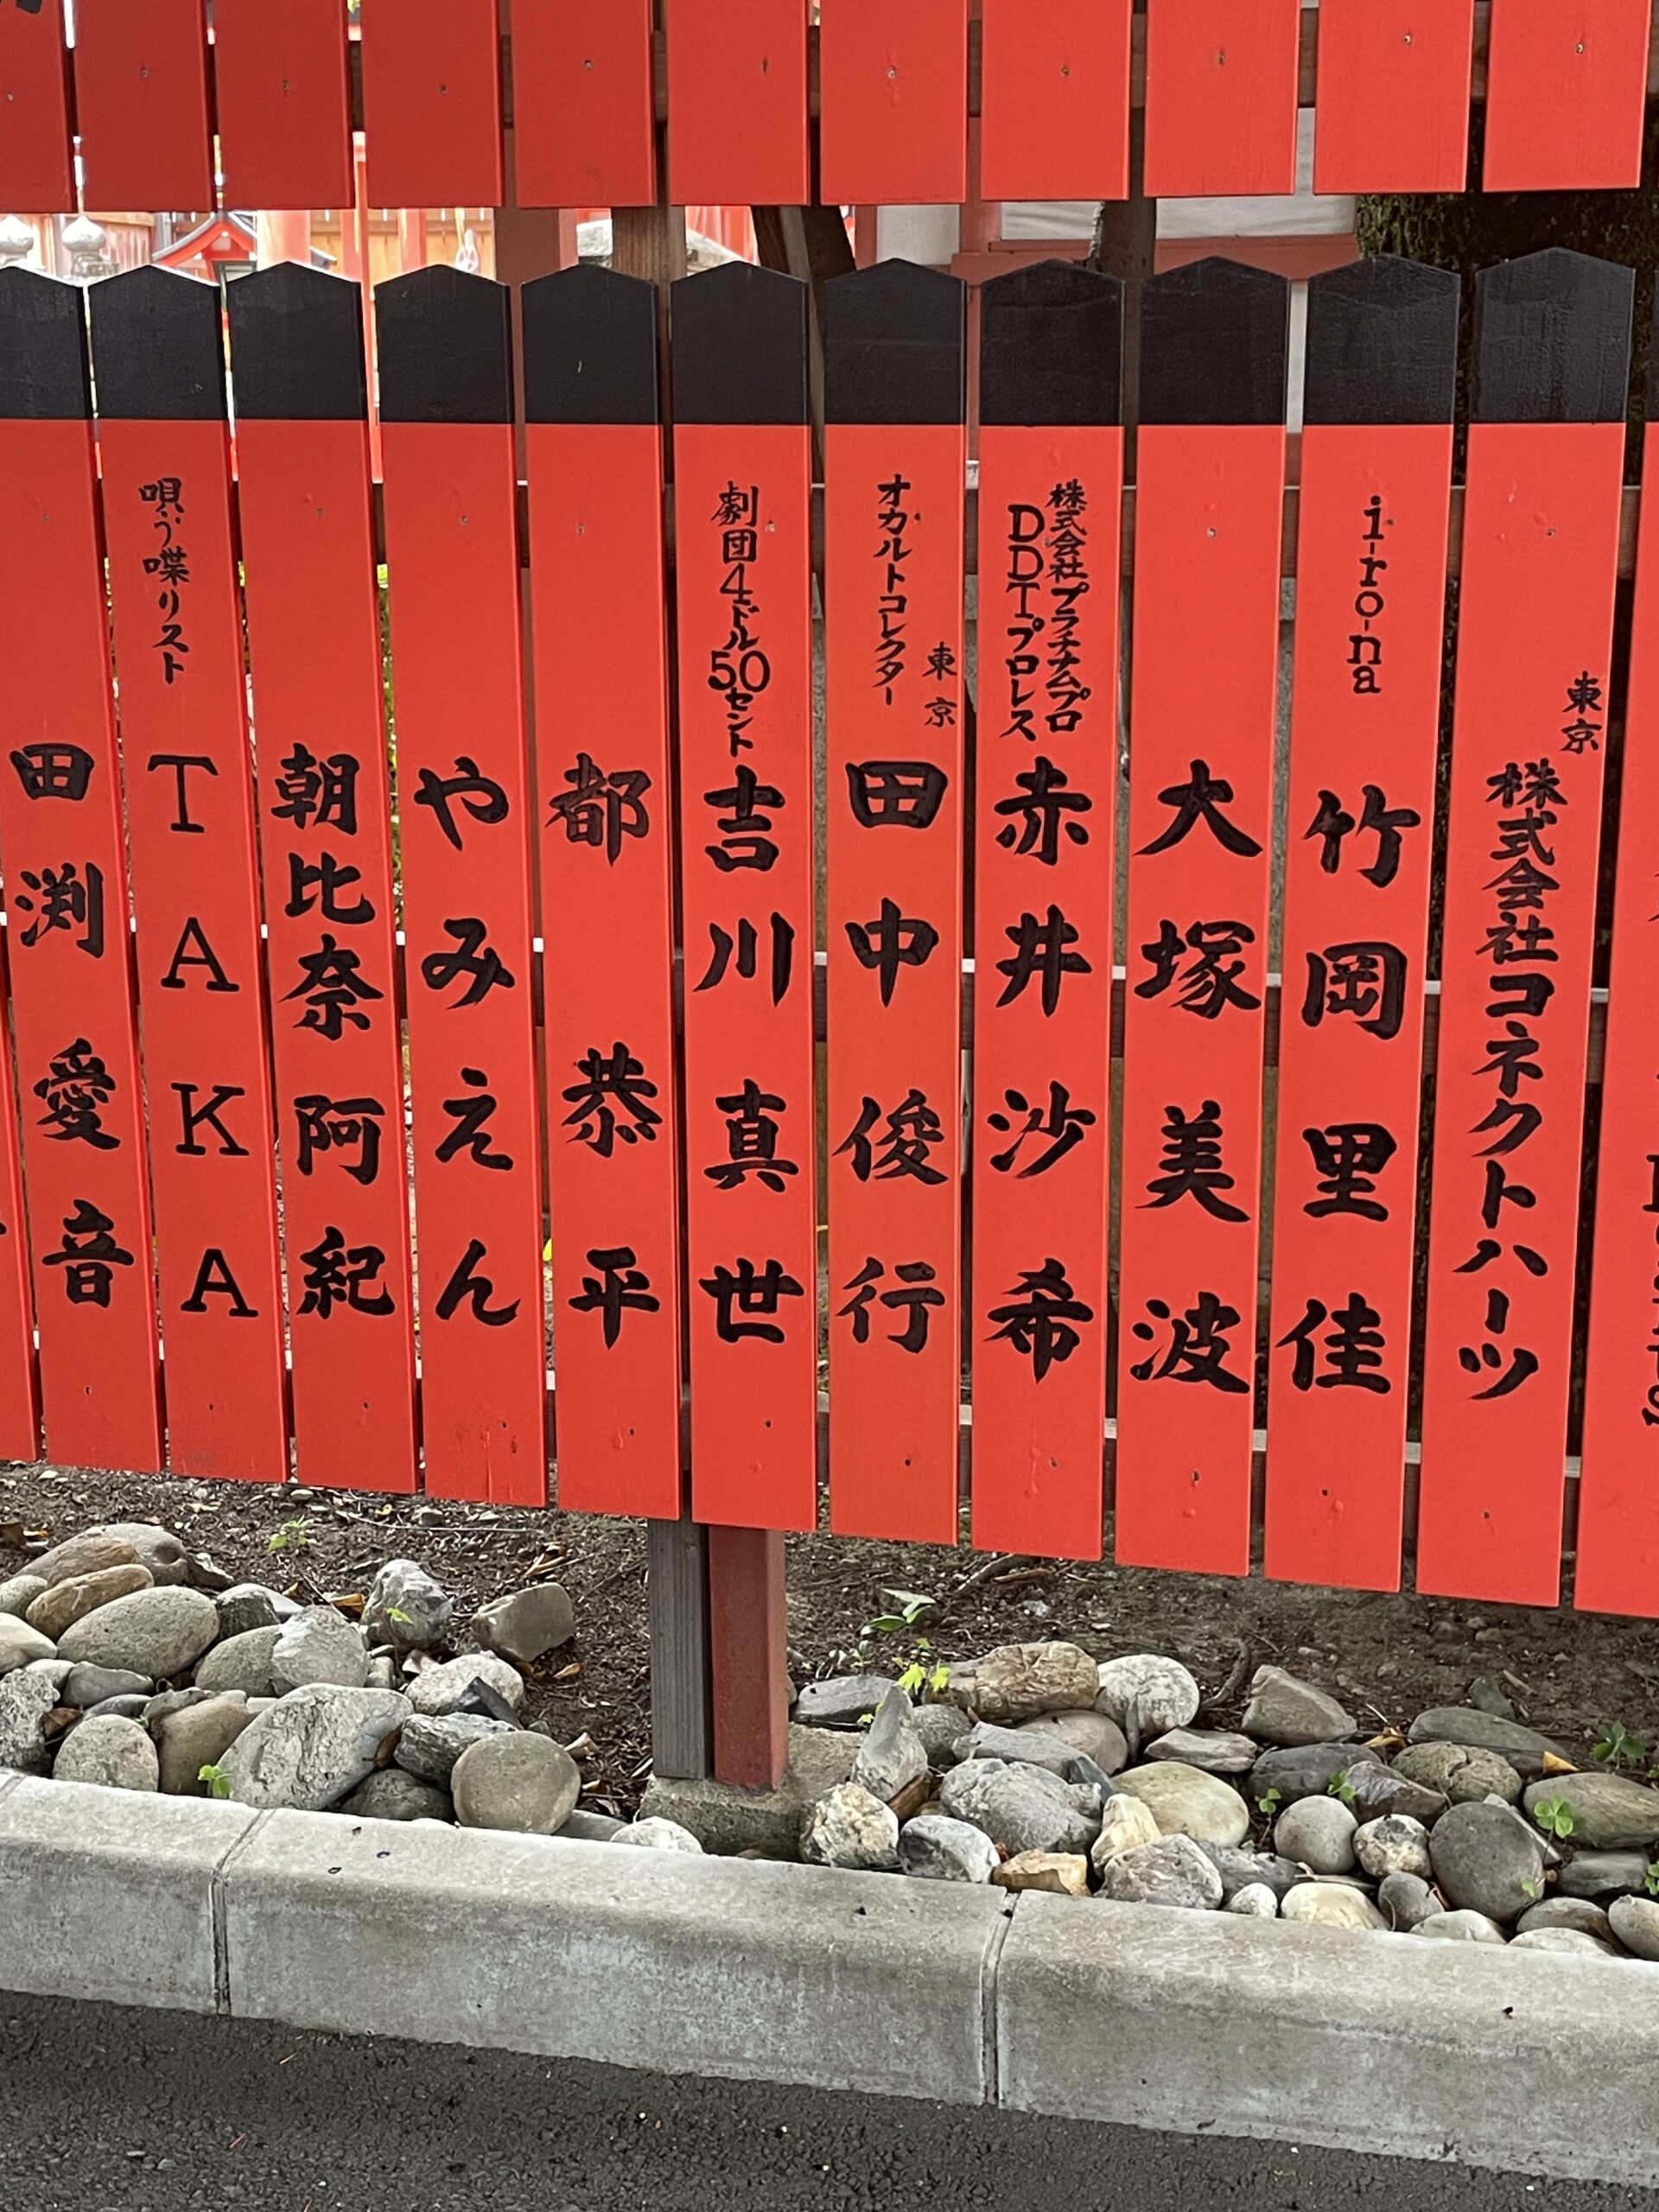 東京
株式会社コネクトハーツ
i-ro-na
竹岡里佳
大塚美波
株式会社プラチナムプロ
DDTプロレス
赤井沙希
東京
オカルトコレクター
田中俊行
劇団4ドル50セント
吉川真世
都恭平
やみえん
朝比奈阿紀
唄う喋リスト
TAKA
田渕愛音